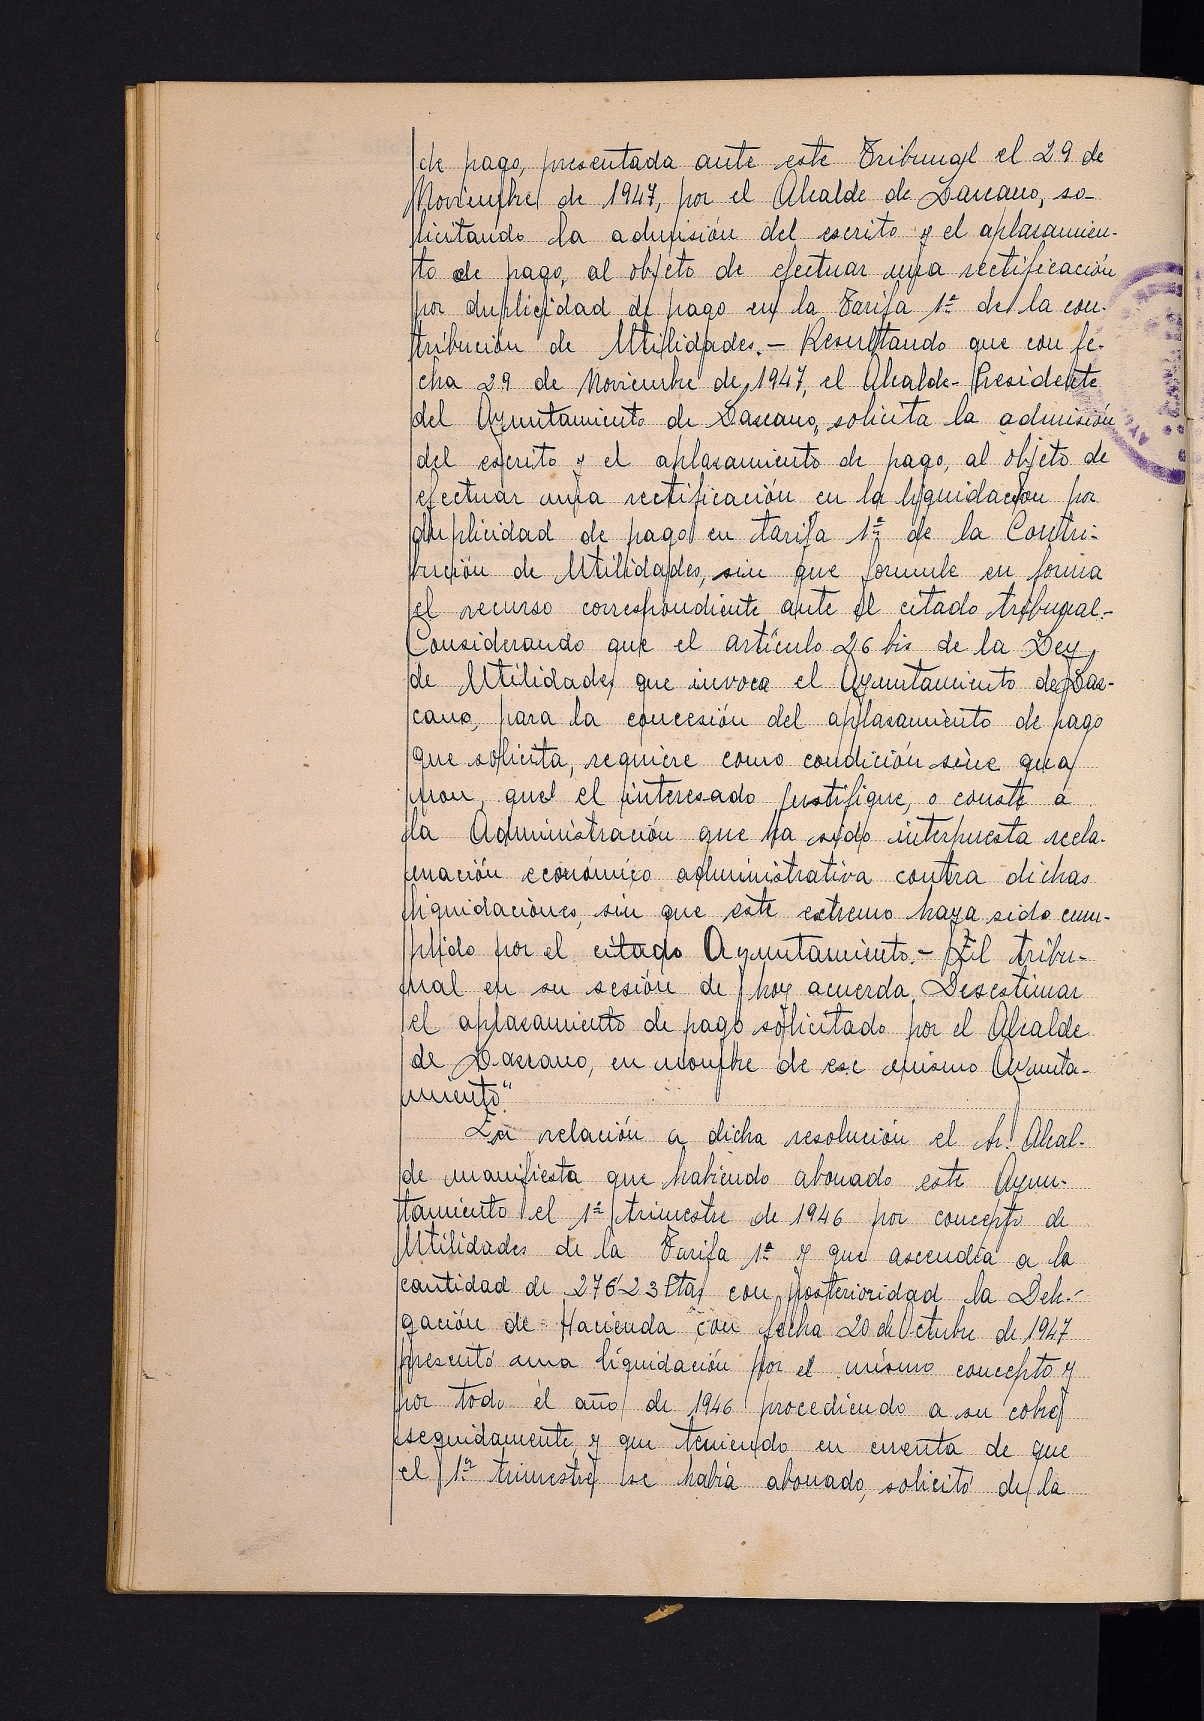 de pago, presentada ante este Tribunal el 29 de
Noviembre de 1947, por el Alcalde de Lazcano, so-
licitando la admisión del escrito y el aplasamien-
to de pago, al objeto de efectuar una rectificación
por duplicidad de pago en la Tarifa 1ª de la con-
tribución de Utilidades.- Resultando que con fe-
cha 29 de Noviembre de 1947, el Alcalde-Presidente
del Ayuntamiento de Lascano, solicita la admisión
del escrito y el aplasamiento de pago, al objeto de
efectuar una rectificación en la liquidación por
duplicidad de pago en tarifa 1ª de la Contri-
bución de Utilidades, sin que formule en forma
el recurso correspondiente ante el citado tribunal.-
Considerando que el artículo 26 bis de la Ley
de Utilidades que invoca el Ayuntamiento de Laz-
cano, para la concesión del aplasamiento de pago
que solicita, requiere como condición sine qua
non, que el interesado justifique, o conste a
la Administración que ha sido interpuesta recla-
mación económico administrativa contra dichas
liquidaciones, sin que este extremo haya sido cum-
plido por el citado Ayuntamiento.- El tribu-
nal en su sesión de hoy acuerda Desestimar
el aplasamiento de pago solicitado por el Alcalde
de Lazcano, en nombre de ese mismo Ayunta-
miento."
En relación a dicha resolución el Sr. Alcal-
de manifiesta que habiendo abonado este Ayun-
tamiento el 1º trimestre de 1946 por concepto de
Utilidades de la Tarifa 1ª y que ascendía a la
cantidad de 276'23 Ptas con posterioridad la Dele-
gación de Hacienda con fecha 20 de Octubre de 1947
presentó una liquidación por el mismo concepto y
por todo el año de 1946 procediendo a su cobro
seguidamente y que teniendo en cuenta de que
el 1º trimestre se había abonado, solicitó de la